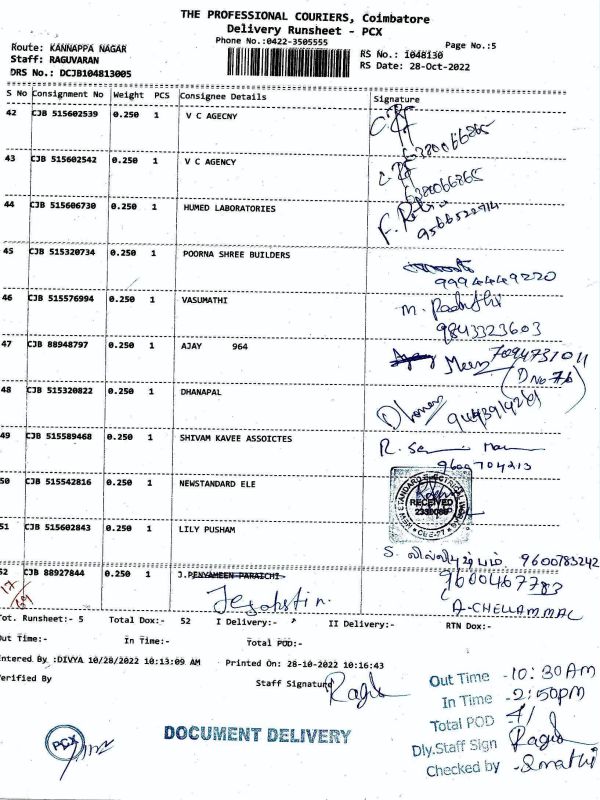 THE PROFESSIONAL COURIERS, Coimbatore
Delivery Runsheet - PCX
Phone No.:0422-3505555
Page No.:5
Route: KANNAPPA NAGAR
Staff: RAGUVARAN
DRS No.: DCJB104813005
RS No.: 1048130
RS Date: 28-Oct-2022
S No Consignment No Weight PCS Consignee Details Signature
42 CJB 515602539 0.250 1 V C AGECNY
6380066265
43 CJB 515602542 0.250 1 V C AGENCY
6380066265
44 CJB 515606730 0.250 1 HUMED LABORATORIES
9566522914
45 CJB 515320734 0.250 1 POORNA SHREE BUILDERS
9994449220
46 CJB 515576994 0.250 1 VASUMATHI
9843323603
47 CJB 88948797 0.250 1 AJAY 964
7094731011
(D No 76)
48 CJB 515320822 0.250 1 DHANAPAL
49 CJB 515589468 0.250 1 SHIVAM KAVEE ASSOICTES
9609704213
50 CJB 515542816 0.250 1 NEWSTANDARD ELE
RECEIVED
51 CJB 515602843 0.250 1 LILY PUSHAM
S. லில்லி புஷ்பம் 9600783242
52 CJB 88927844 0.250 1 J.PENYAMEEN PARAICHI
9600467783
A-CHELLAMMAL
Tot. Runsheet:- 5 Total Dox:- 52 I Delivery:- II Delivery:- RTN Dox:-
Out Time:- In Time:- Total POD:-
Entered By :DIVYA 10/28/2022 10:13:09 AM Printed On: 28-10-2022 10:16:43
Verified By Staff Signature
Out Time -10:30Am
In Time -2:50pm
Total POD
Dly.Staff Sign
Checked by
PCX
DOCUMENT DELIVERY